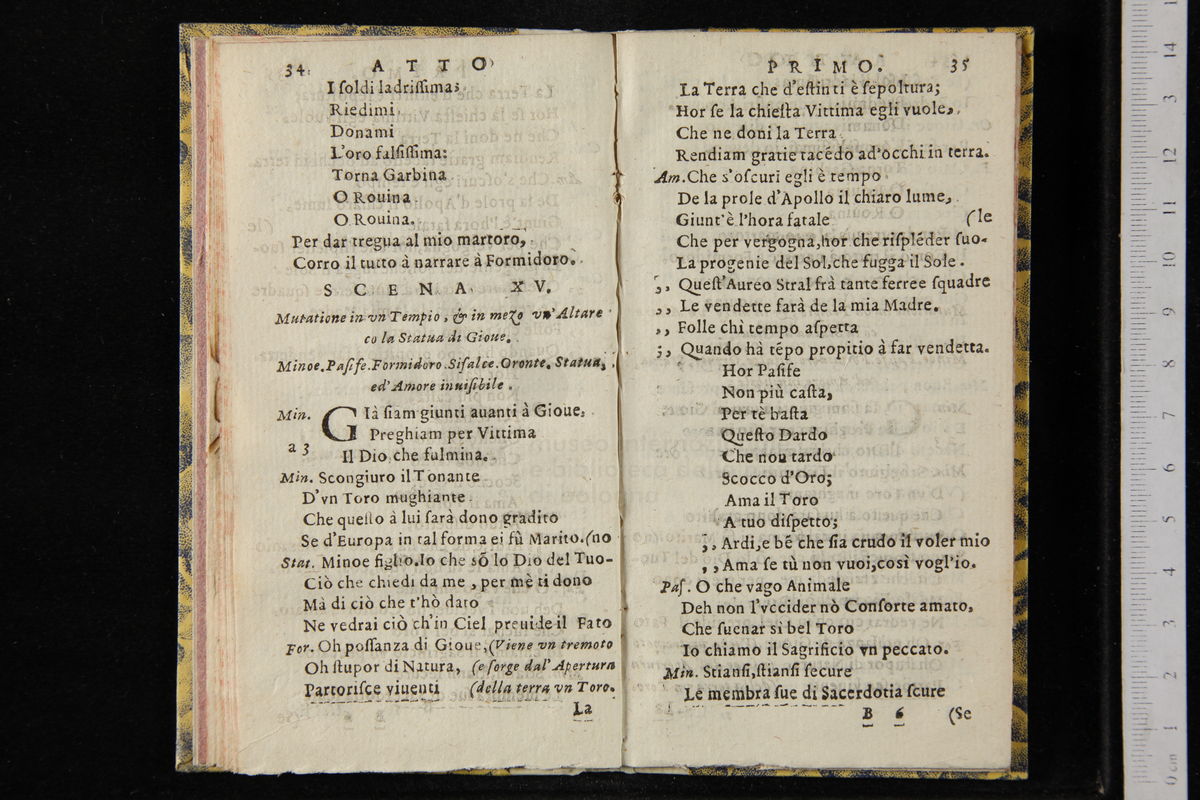 34. ATTO
I ſoldi ladriſſima;
Riedimi
Donami
L'oro falſiſſima:
Torna Garbina
O Rouina
O Rouina.
Per dar tregua al mio martoro,
Corro il tutto à narrare à Formidoro.
SCENA XV.
Mutatione in vn Tempio, & in mezo vn'Altare
co la Statua di Gioue.
Minoe. Paſife. Formidoro. Siſalce. Oronte. Statua,
ed'Amore inuiſibile.
Min. Già ſiam giunti auanti à Gioue,
a 3 Preghiam per Vittima
Il Dio che fulmina.
Min. Scongiuro il Tonante
D'vn Toro mughiante
Che queſto à lui ſarà dono gradito
Se d'Europa in tal forma ei fù Marito. (no
Stat. Minoe figlio. Io che sō lo Dio del Tuo-
Ciò che chiedi da me, per mè ti dono
Mà di ciò che t'hò dato
Ne vedrai ciò ch'in Ciel preuide il Fato
For. Oh poſſanza di Gioue, (Viene vn tremoto
Oh ſtupor di Natura, (e ſorge dal'Apertura
Partoriſce viuenti (della terra vn Toro.
La
PRIMO. 35
La Terra che d'eſtinti è ſepoltura;
Hor ſe la chieſta Vittima egli vuole,
Che ne doni la Terra
Rendiam gratie tacēdo ad'occhi in terra.
Am. Che s'oſcuri egli è tempo
De la prole d'Apollo il chiaro lume,
Giunt'è l'hora fatale (le
Che per vergogna, hor che riſplēder ſuo-
La progenie del Sol, che fugga il Sole.
,, Queſt'Aureo Stral frà tante ferree ſquadre
,, Le vendette farà de la mia Madre.
,, Folle chi tempo aſpetta
,, Quando hà tēpo propitio à far vendetta.
Hor Paſife
Non più caſta,
Per tè baſta
Queſto Dardo
Che non tardo
Scocco d'Oro;
Ama il Toro
A tuo diſpetto;
,, Ardi, e bē che ſia crudo il voler mio
,, Ama ſe tù non vuoi, così vogl'io.
Paſ. O che vago Animale
Deh non l'vccider nò Conſorte amato,
Che ſuenar sì bel Toro
Io chiamo il Sagrificio vn peccato.
Min. Stianſi, ſtianſi ſecure
Le membra ſue di Sacerdotia ſcure
B 6 (Se